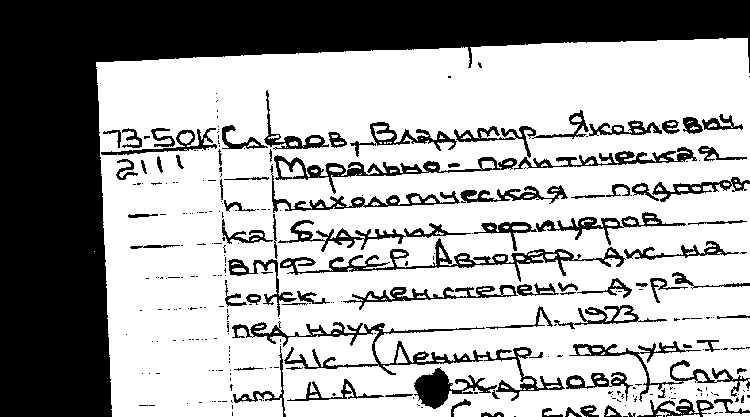 73-50К Слепов, Владимир Яковлевич.
2111 Морально-политическая
и психологическая подготов-
ка будущих офицеров
ВМФ СССР. Автореф. дис. на
соиск. учен. степени д-ра
пед. наук. Л., 1973.
41с (Ленингр. гос. ун-т
им. А.А. Жданова) Спи-
См. след. карт.